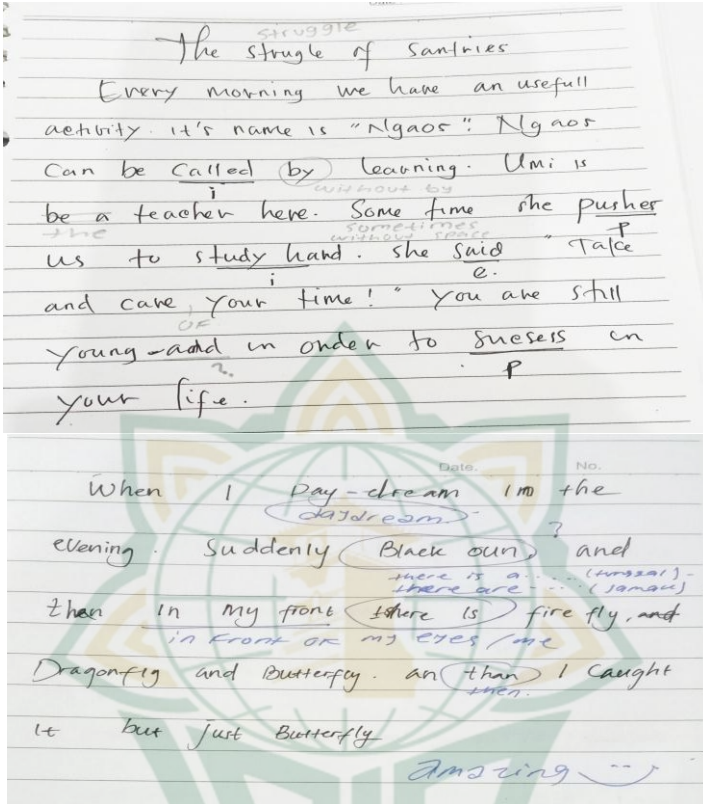 Date.
struggle
The strugle of santries
Every morning we have an usefull
activity. it's name is "Ngaos". Ngaos
Can be called by learning. Umi is
i
without by
be a teacher here. Some time she pusher
the
sometimes
without space
P
us to study hard. she said "Take
i
e.
and care, your time!" you are still
OF
young and in order to suesess in
?
P
your life.
Date. No.
When I Day-dream im the
daydream
evening. Suddenly Black oun, and
?
there is a..... (tunggal)-
there are ... (jamak)
then in my front there is fire fly, and
in front of my eyes / me
Dragonfly and Butterfly. an than I Caught
then.
It but just Butterfly
amazing